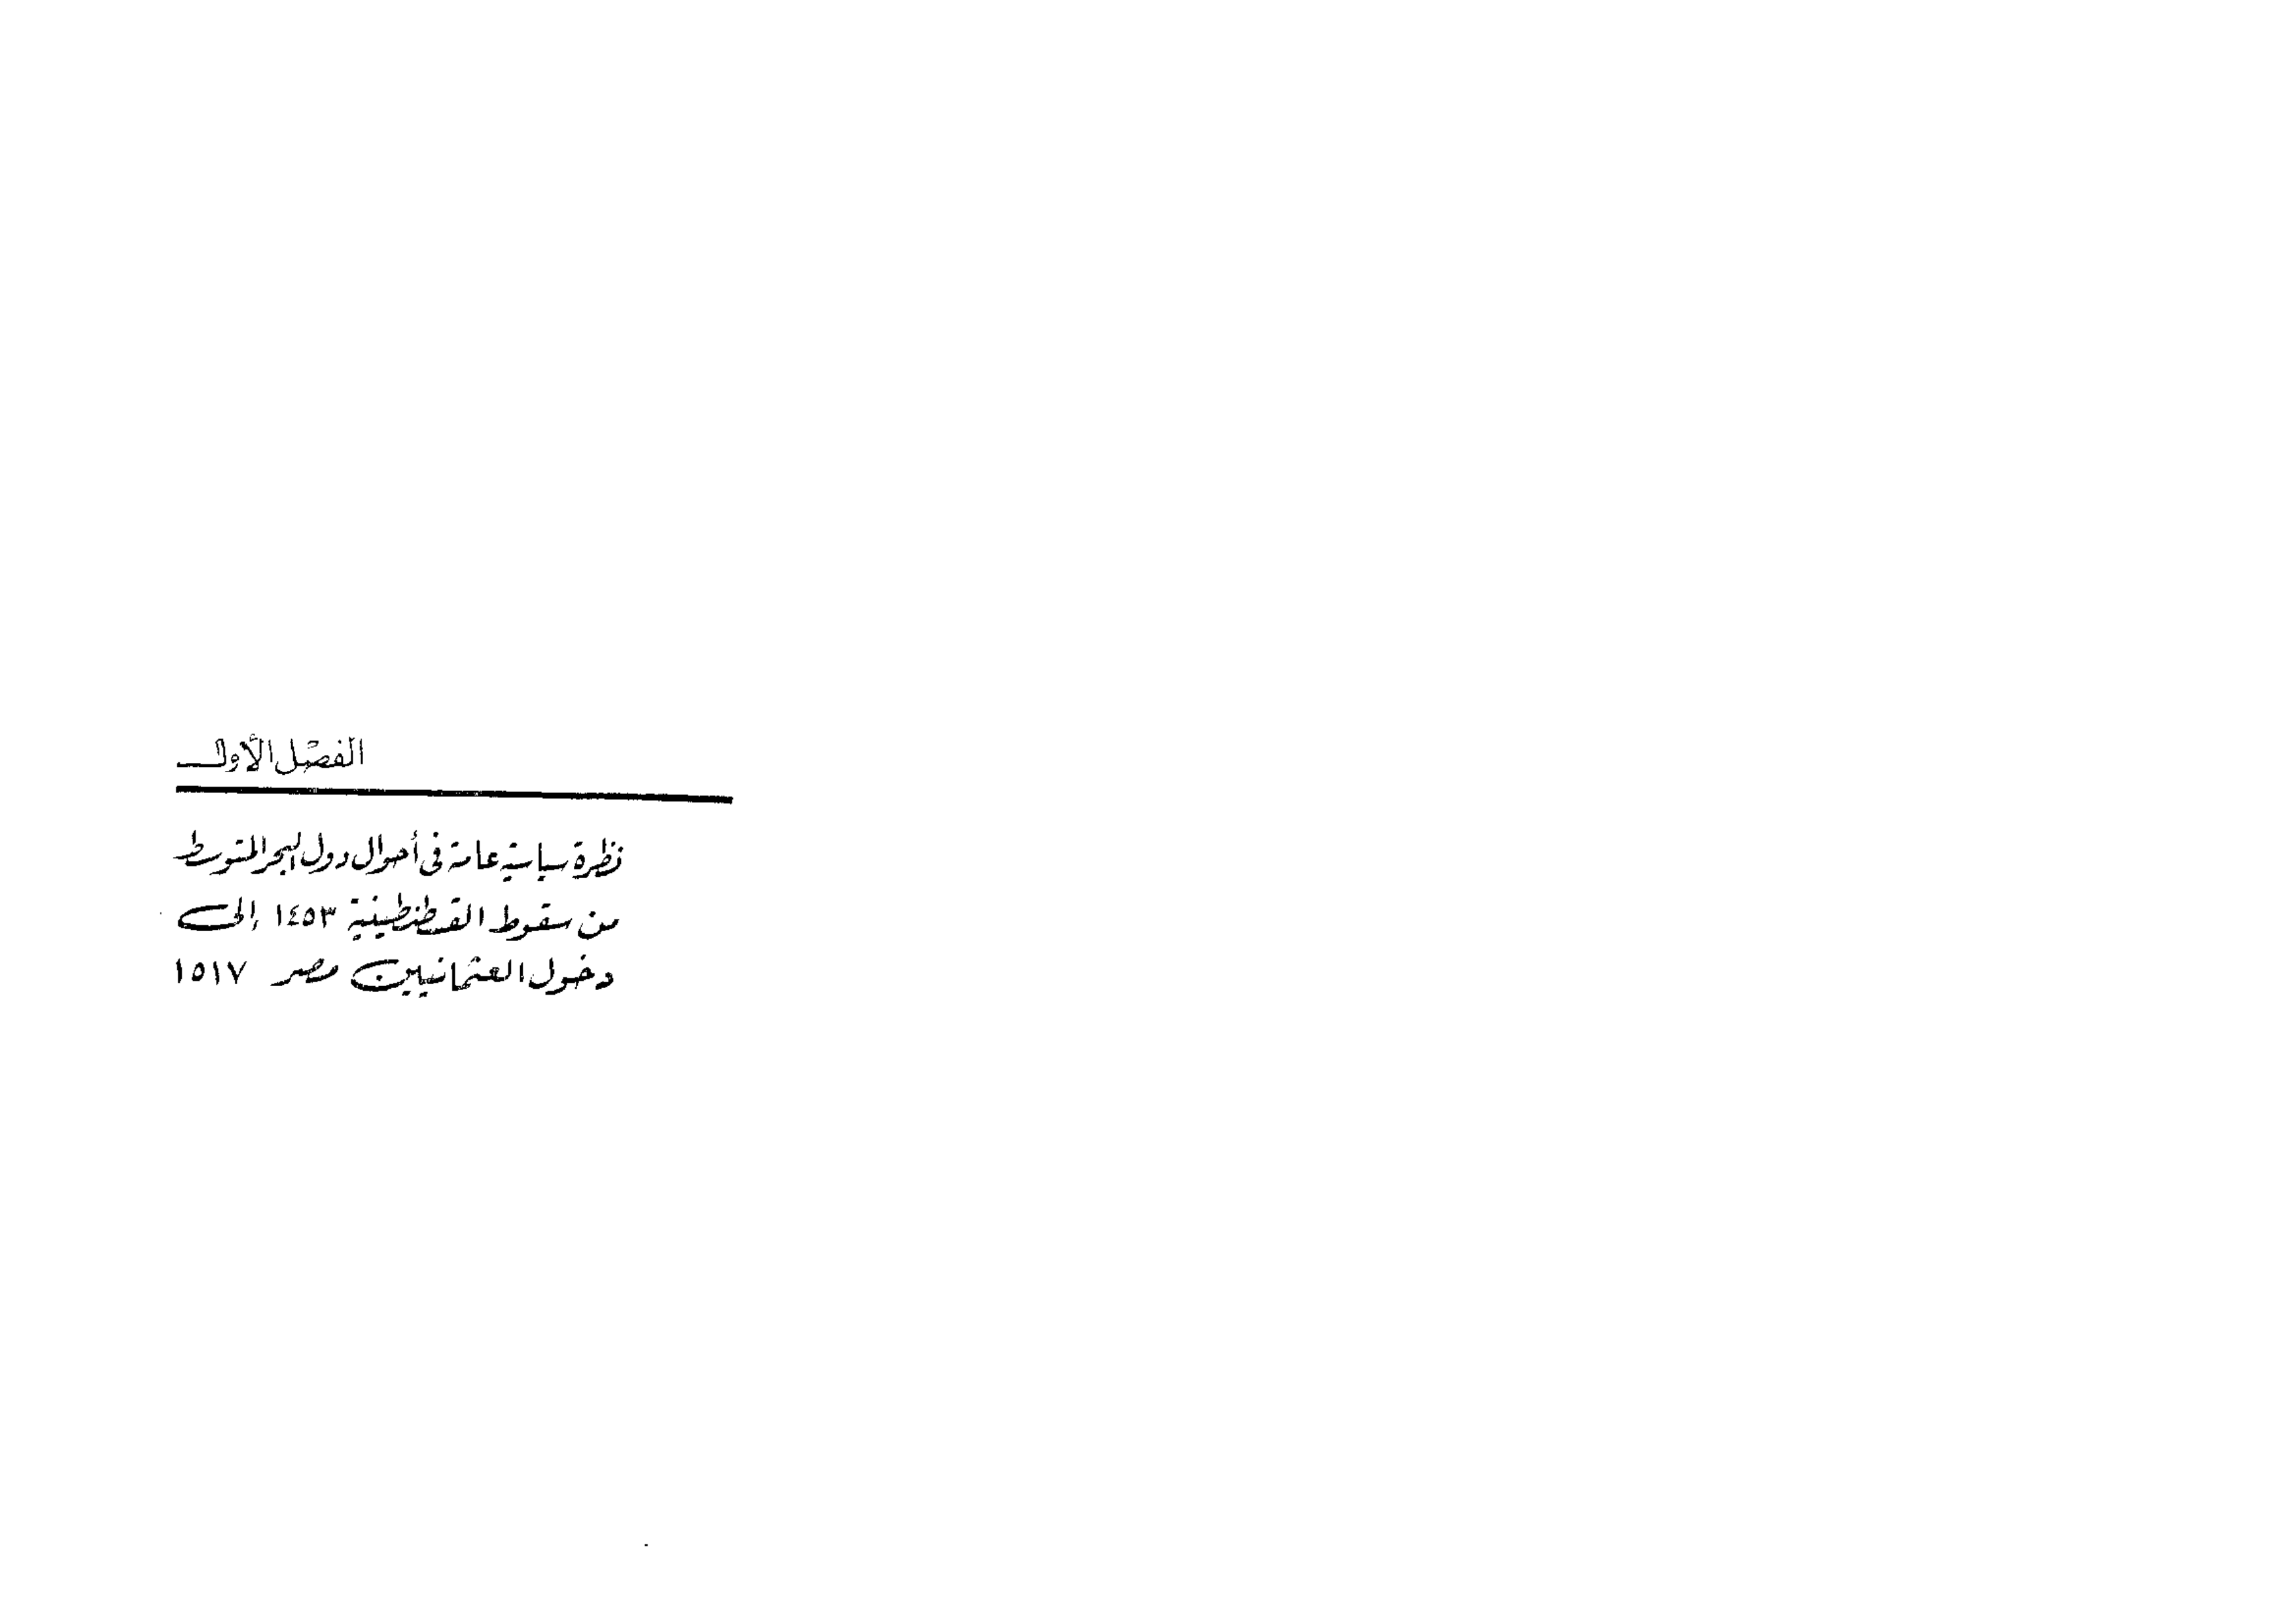 الفصل الأول
نظرة سياسية عامة فى أحوال دول البحر المتوسط
من سقوط القسطنطينية ١٤٥٣ إلى
دخول العثمانيين مصر ١٥١٧